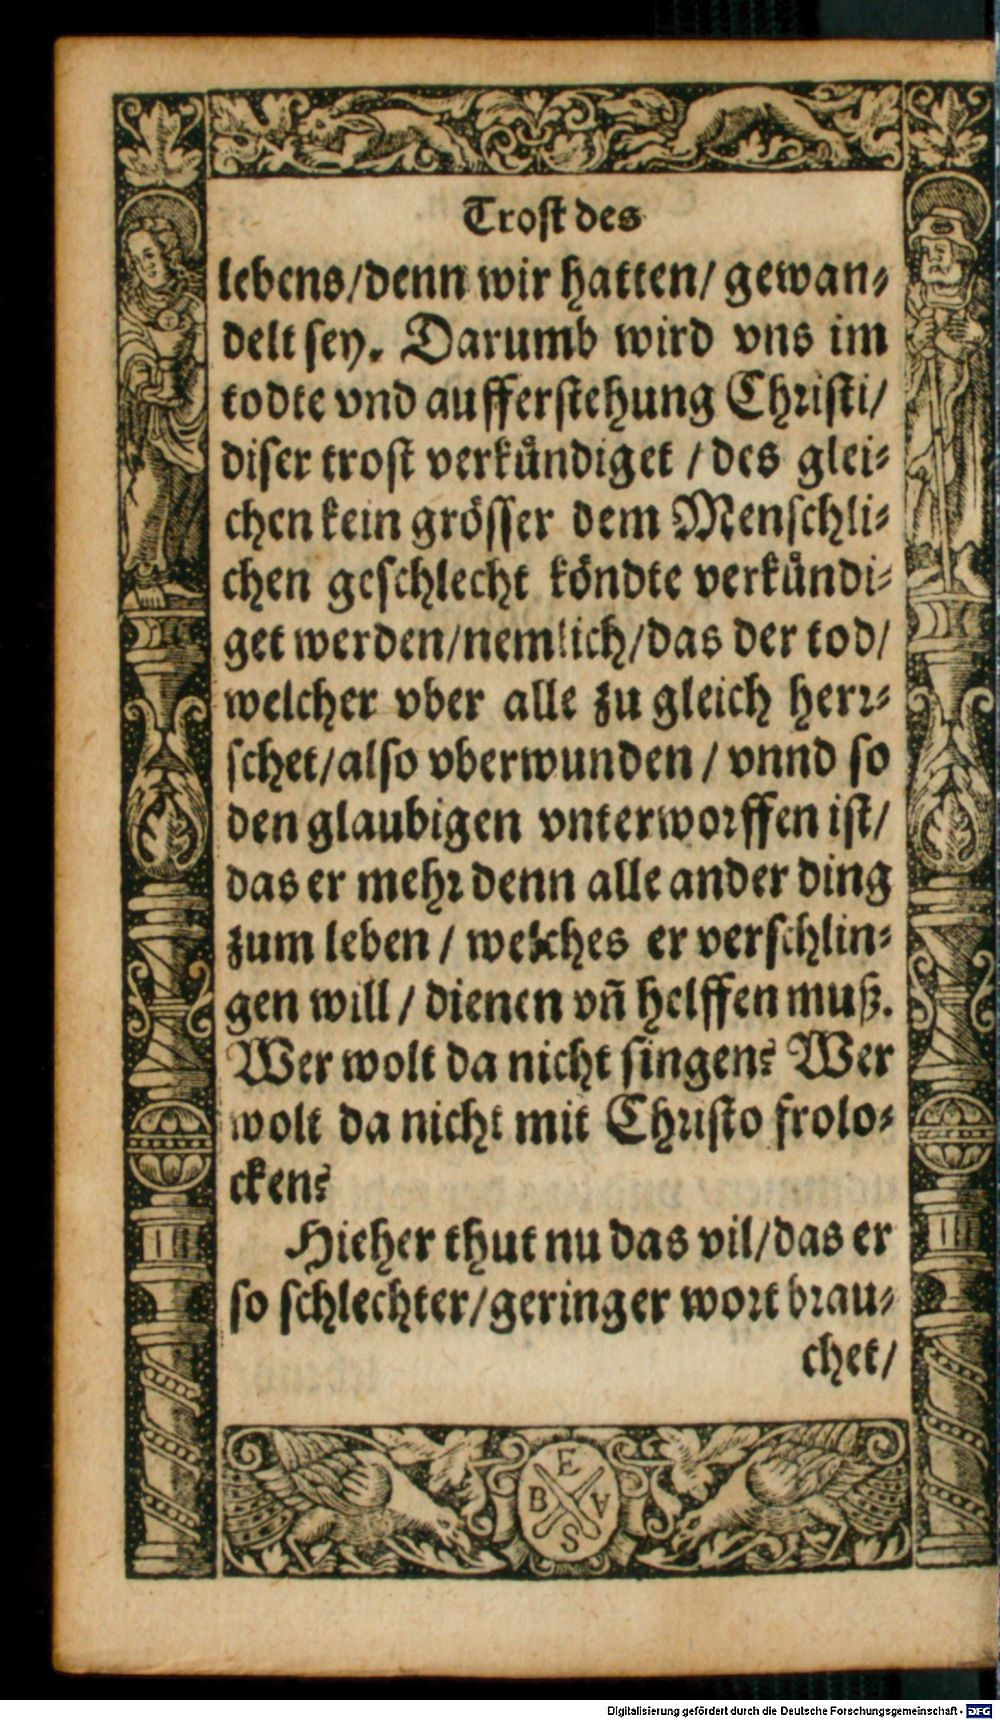 Trost des
lebens/denn wir hatten/ gewan⸗
delt sey. Darumb wird vns im
todte vnd aufferstehung Christi/
diser trost verkuͤndiget / des glei⸗
chen kein grösser dem Menschli⸗
chen geschlecht köndte verkuͤndi⸗
get werden/nemlich/das der tod/
welcher vber alle zu gleich herr⸗
schet/also vberwunden / vnnd so
den glaubigen vnterworffen ist/
das er mehr denn alle ander ding
zum leben / welches er verschlin⸗
gen will / dienen vñ helffen muß.
Wer wolt da nicht singen? Wer
wolt da nicht mit Christo frolo⸗
cken?
Hieher thut nu das vil/das er
so schlechter/geringer wort brau⸗
chet/
E
B A
S
Digitalisierung gefördert durch die Deutsche Forschungsgemeinschaft - DFG